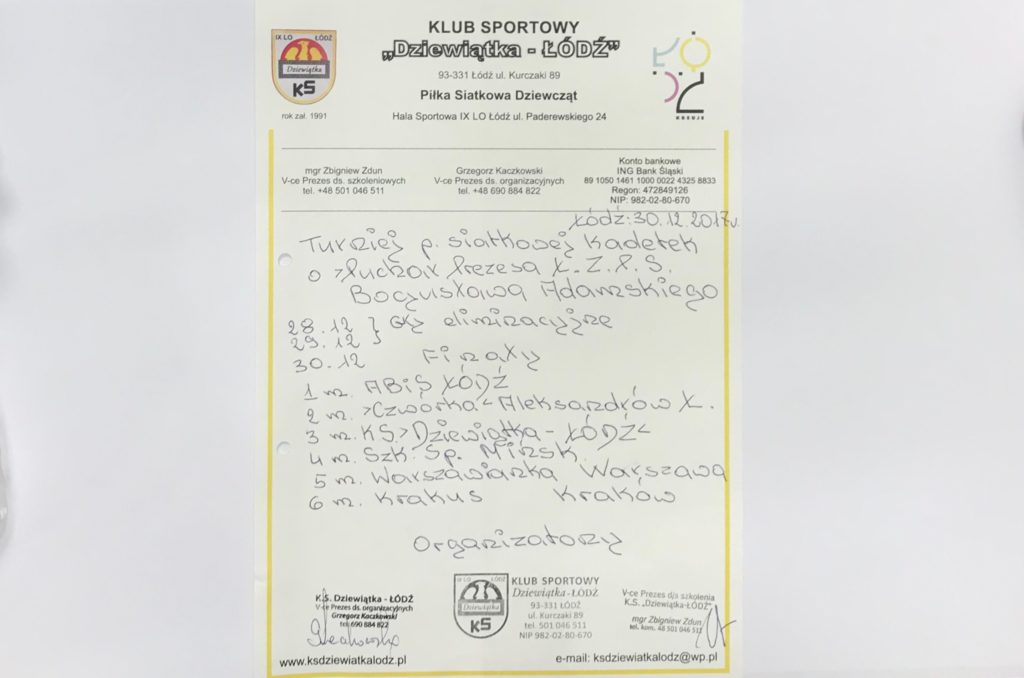 KLUB SPORTOWY
„Dziewiątka - ŁÓDŹ”
93-331 Łódź ul. Kurczaki 89
Piłka Siatkowa Dziewcząt
Hala Sportowa IX LO Łódź ul. Paderewskiego 24
IX LO ŁÓDŹ
Dziewiątka
KS
rok zał. 1991
ŁÓDŹ
KREUJE
mgr Zbigniew Zdun
V-ce Prezes ds. szkoleniowych
tel. +48 501 046 511
Grzegorz Kaczkowski
V-ce Prezes ds. organizacyjnych
tel. +48 690 884 822
Konto bankowe
ING Bank Śląski
89 1050 1461 1000 0022 4325 8833
Regon: 472849126
NIP: 982-02-80-670
Łódź: 30.12.2017r.
Turniej p. siatkowej kadetek
o >Puchar Prezesa Ł.Z.P.S.
Bogusława Adamskiego
28.12 } Gry eliminacyjne
29.12
30.12 Finały
1 m. ABiS ŁÓDŹ
2 m. >Czwórka< Aleksandrów Ł.
3 m. KS. >Dziewiątka - ŁÓDŹ<
4 m. Szk. Sp. Mińsk
5 m. Warszawianka Warszawa
6 m. Krakus Kraków
Organizatorzy
K.S. Dziewiątka - ŁÓDŹ
V-ce Prezes ds. organizacyjnych
Grzegorz Kaczkowski
tel. 690 884 822
IX LO ŁÓDŹ
Dziewiątka
KS
KLUB SPORTOWY
Dziewiątka - ŁÓDŹ
93-331 ŁÓDŹ
ul. Kurczaki 89
tel. 501 046 511
NIP 982-02-80-670
V-ce Prezes d/s szkolenia
K.S. „Dziewiątka-ŁÓDŹ”
mgr Zbigniew Zdun
tel. kom. 48 501 046 511
www.ksdziewiatkalodz.pl
e-mail: ksdziewiatkalodz@wp.pl